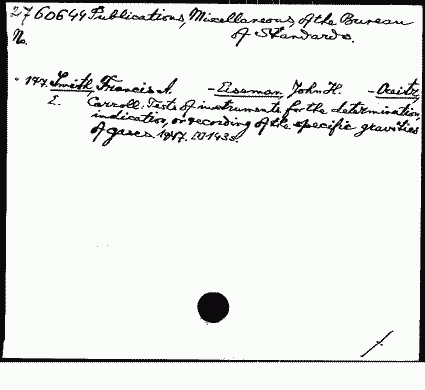 27 60644 Publications, Miscellaneous, of the Bureau
No. of Standards.
" 177. Smith, Francis A. - Eiseman, John H. - Creitz,
E. Carroll: Tests of instruments for the determination,
indication, or recording of the specific gravities
of gases. 1947.